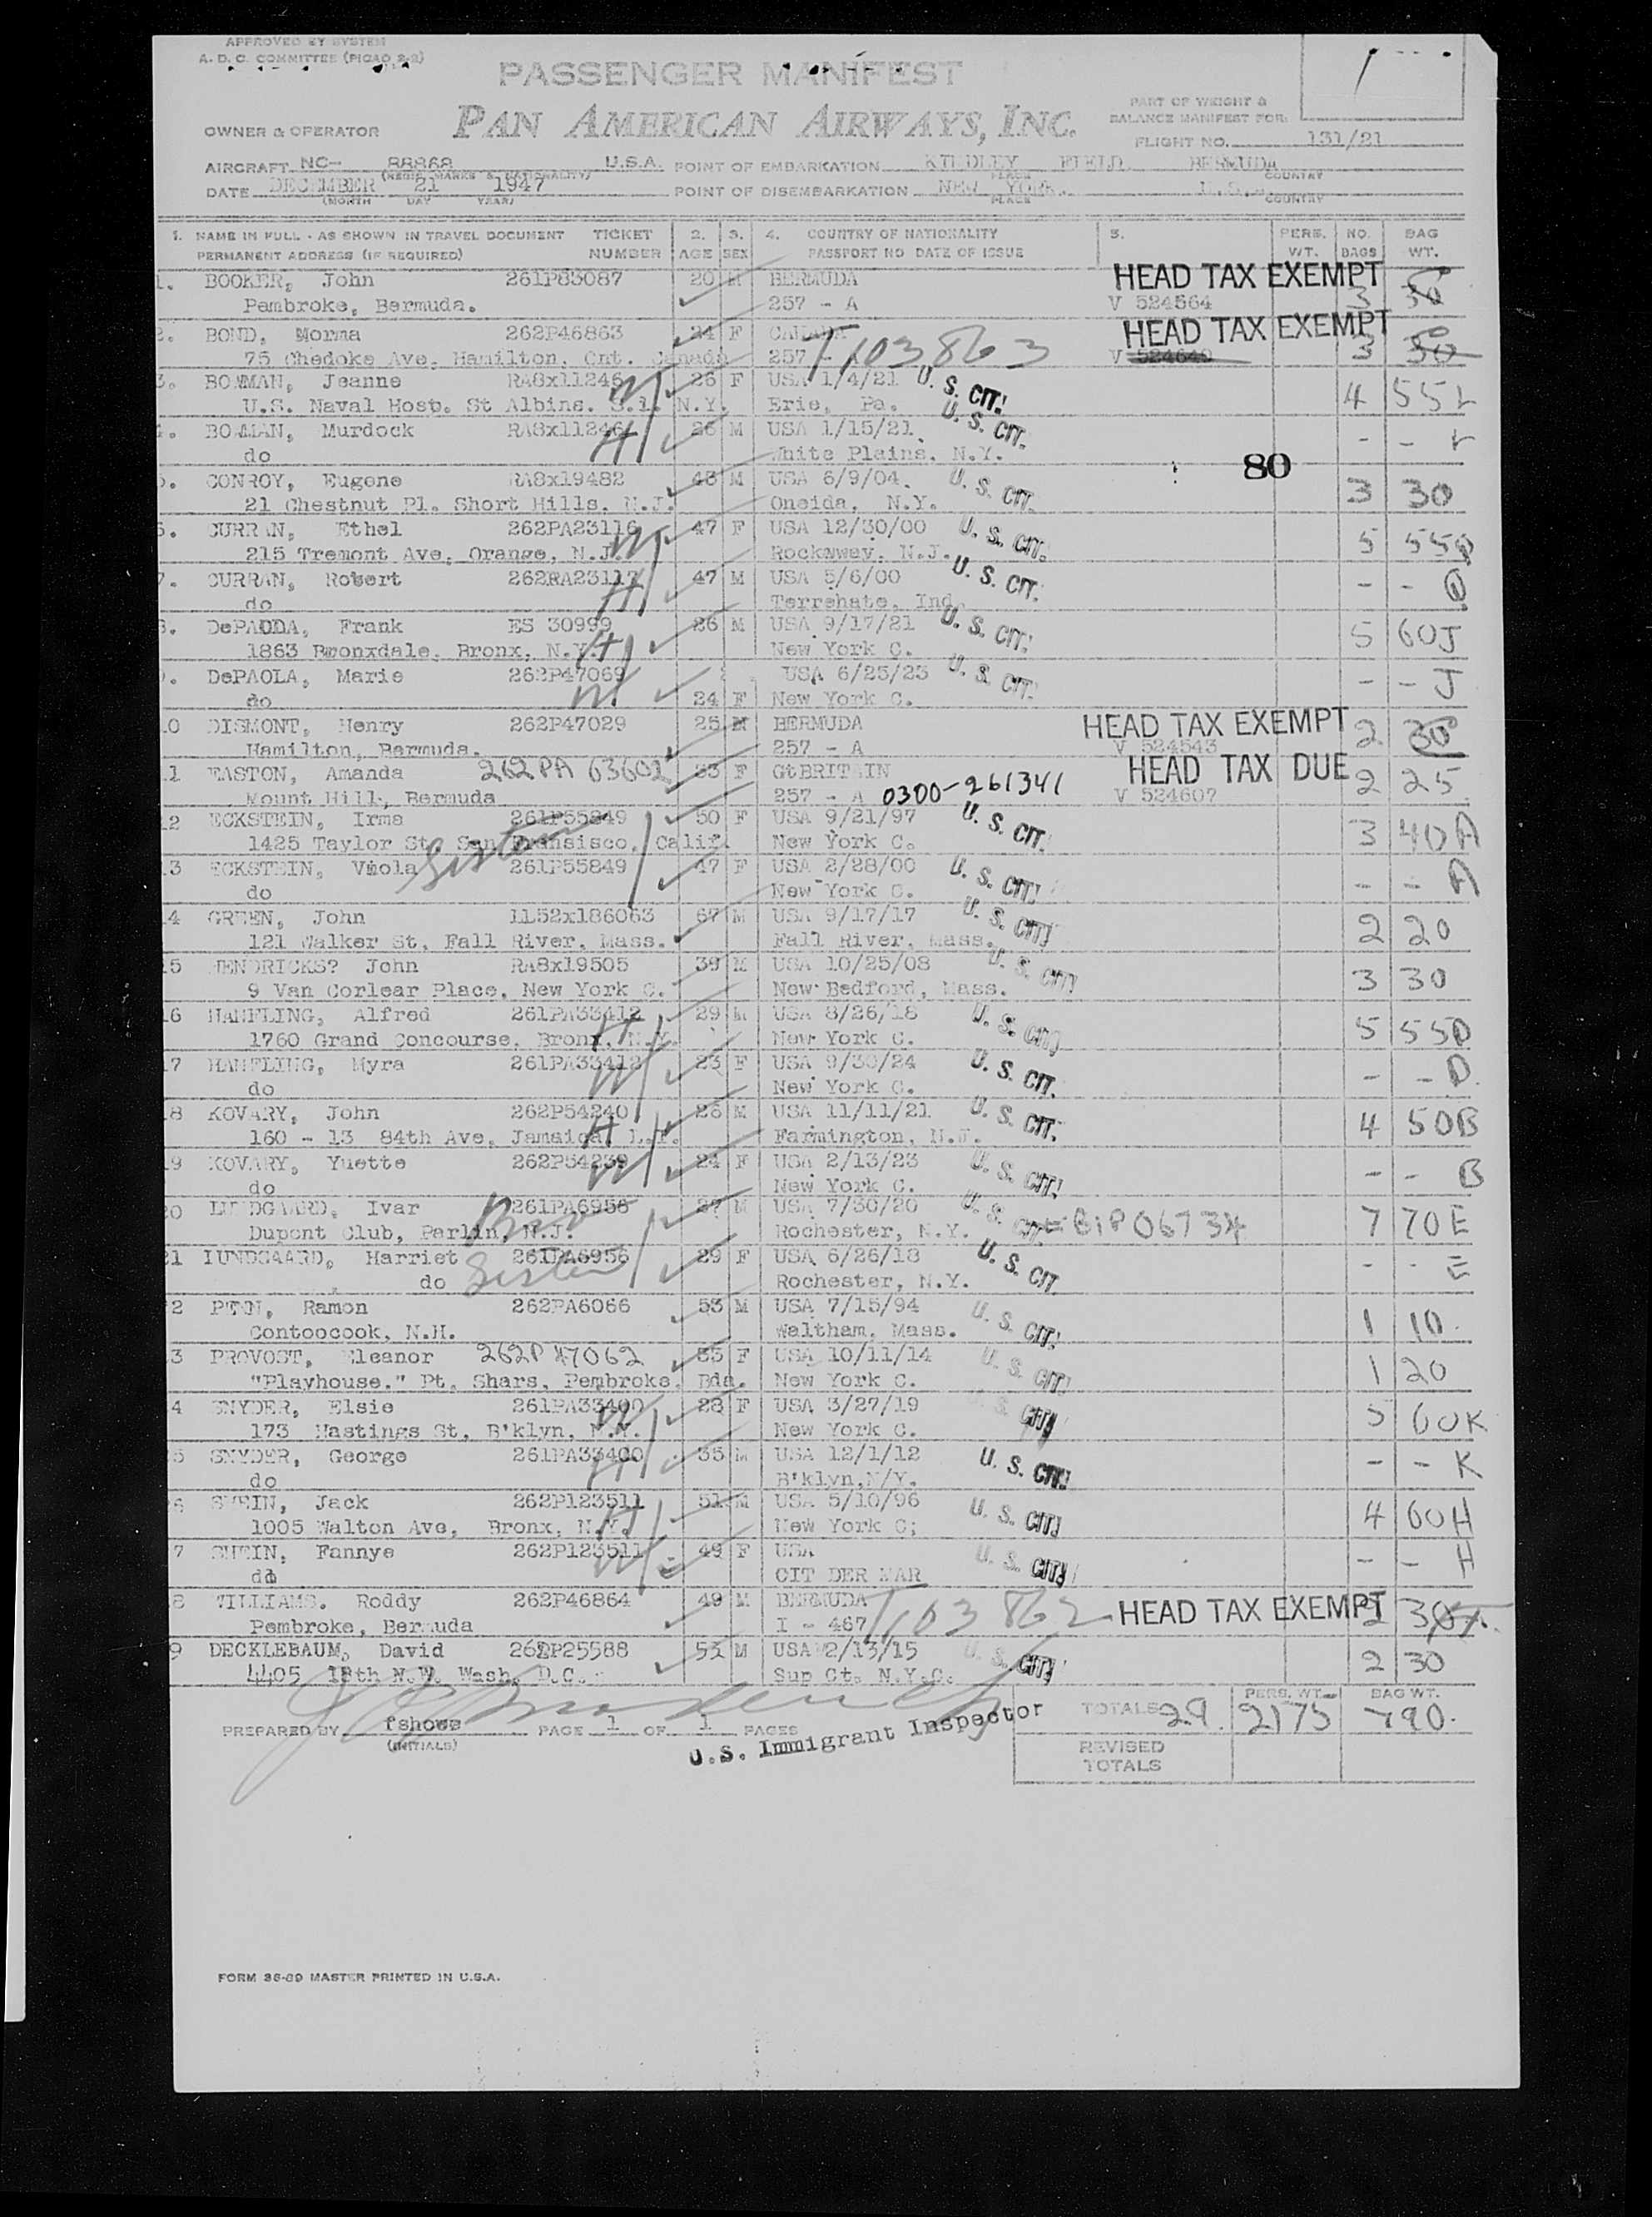 APPROVED BY SYSTEM
A. D. C. COMMITTEE (PICAO 2-2)
PASSENGER MANIFEST
PAN AMERICAN AIRWAYS, INC.
PART OF WEIGHT &
BALANCE MANIFEST FOR:
OWNER & OPERATOR
FLIGHT NO. 131/21
AIRCRAFT NC- 88868 U.S.A. POINT OF EMBARKATION KINDLEY FIELD. BERMUDA
(REGIS. MARKS & NATIONALITY) PLACE COUNTRY
DATE DECEMBER 21 1947 POINT OF DISEMBARKATION NEW YORK. U.S.A.
(MONTH DAY YEAR) PLACE COUNTRY
1. NAME IN FULL - AS SHOWN IN TRAVEL DOCUMENT TICKET 2. 3. 4. COUNTRY OF NATIONALITY 5. PERS. NO. BAG
PERMANENT ADDRESS (IF REQUIRED) NUMBER AGE SEX PASSPORT NO DATE OF ISSUE WT. BAGS WT.
1. BOOKER, John 261P83087 20 M BERMUDA HEAD TAX EXEMPT
Pembroke, Bermuda. 257 - A V 524564 3 30
2. BOND, Norma 262P46863 24 F CANADA HEAD TAX EXEMPT
75 Chedoke Ave, Hamilton, Ont. Canada 257 - T103863 V 524640 3 30
3. BOWMAN, Jeanne RA8x11246 W 26 F USA 1/4/21 U. S. CIT.
U.S. Naval Hosp. St Albins. S.l. N.Y. Erie, Pa. 4 55 L
4. BOWMAN, Murdock RA8x11246 H 26 M USA 1/15/21 U. S. CIT. - - L
do White Plains, N.Y. 80
5. CONROY, Eugene RA8x19482 43 M USA 6/9/04. U. S. CIT.
21 Chestnut Pl. Short Hills, N.J. Oneida, N.Y. 3 30
6. CURRAN, Ethel 262PA23116 W 47 F USA 12/30/00 U. S. CIT.
215 Tremont Ave, Orange, N.J. Rockaway, N.J. 5 55
7. CURRAN, Robert 262RA23117 H 47 M USA 5/6/00 U. S. CIT. - -
do Terrehate, Ind
8. DePAODA, Frank ES 30999 26 M USA 9/17/21 U. S. CIT.
1863 Bronxdale, Bronx, N.Y. H New York C. 5 60 J
9. DePAOLA, Marie 262P47069 W USA 6/25/23 U. S. CIT. - - J
do 24 F New York C.
10 DISMONT, Henry 262P47029 25 M BERMUDA HEAD TAX EXEMPT
Hamilton, Bermuda. 257 - A V 524543 2 30
11 EASTON, Amanda 262PA 63602 53 F GtBRITAIN HEAD TAX DUE
Mount Hill, Bermuda 257 - A 0300-261341 V 524607 2 25
12 ECKSTEIN, Irma 261P55849 50 F USA 9/21/97 U. S. CIT.
1425 Taylor St, San Fransisco, Calif. New York C. 3 40 A
Sisters
13 ECKSTEIN, Viola 261P55849 47 F USA 2/28/00 U. S. CIT. - - A
do New York C.
14 GREEN, John IL52x186063 67 M USA 9/17/17 U. S. CIT.
121 Walker St, Fall River, Mass. Fall River, Mass. 2 20
15 HENDRICKS? John RA8x19505 39 M USA 10/25/08 U. S. CIT.
9 Van Corlear Place, New York C. New Bedford, Mass. 3 30
16 HANFLING, Alfred 261PA33412 H 29 M USA 8/26/18 U. S. CIT.
1760 Grand Concourse, Bronx, N.Y. New York C. 5 55 D
17 HANFLING, Myra 261PA33412 W 23 F USA 9/30/24 U. S. CIT. - - D
do New York C.
18 KOVARY, John 262P54240 H 26 M USA 11/11/21 U. S. CIT.
160 - 13 84th Ave, Jamaica, L.I. Farmington, N.J. 4 50 B
19 KOVARY, Yuette 262P54239 W 24 F USA 2/13/23 U. S. CIT. - - B
do New York C.
20 LUNDGAARD, Ivar 261PA6956 27 M USA 7/30/20 U. S. CIT.
Dupont Club, Parlin, N.J. Bro Rochester, N.Y. 7 70 E
21 IUNDSGAARD, Harriet 261PA6956 29 F USA 6/26/18 U. S. CIT. - - E
do Sister Rochester, N.Y.
22 Ramon 262PA6066 53 M USA 7/15/94 U. S. CIT.
Contoocook, N.H. Waltham, Mass. 1 10
23 PROVOST, Eleanor 262P47062 33 F USA 10/11/14 U. S. CIT.
"Playhouse." Pt. Shars, Pembroke, Bda. New York C. 1 20
24 SNYDER, Elsie 261PA33400 W 28 F USA 3/27/19 U. S. CIT.
173 Hastings St, B'klyn, N.Y. New York C. 5 60 K
25 SNYDER, George 261PA33400 H 35 M USA 12/1/12 U. S. CIT. - - K
do B'klyn,N/Y.
26 Jack 262P123511 H 51 M USA 5/10/96 U. S. CIT.
1005 Walton Ave, Bronx, N.Y. New York C; 4 60 H
27 Fannye 262P123511 W 49 F USA U. S. CIT. - - H
do CIT DER MAR
28 WILLIAMS. Roddy 262P46864 49 M BERMUDA HEAD TAX EXEMPT
Pembroke, Bermuda I - 467 T103862 2 30
29 DECKLEBAUM, David 262P25588 53 M USA 2/13/15 U. S. CIT.
4405 18th N.W. Wash, D.C. Sup Ct. N.Y.C. 2 30
PERS. WT. BAG WT.
TOTALS 29 2175 790
PREPARED BY fshowe PAGE 1 OF 1 PAGES
(INITIALS) U.S. Immigrant Inspector
REVISED
TOTALS
FORM 36-69 MASTER PRINTED IN U.S.A.